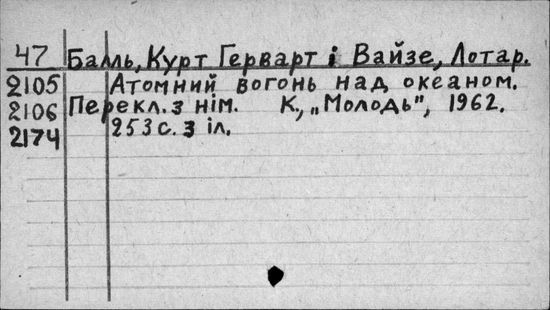 47 Балль, Курт Герварт і Вайзе, Лотар.
2105 Атомний вогонь над океаном.
2106 Перекл. з нім. К., „Молодь", 1962.
2174 253 с. з іл.